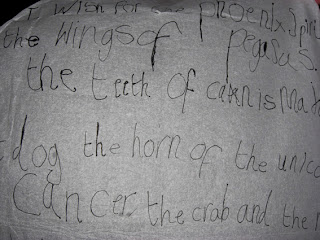 I wish for phoenix spiri
the wings of pegasus.
the teeth of
dog the horn of the unico
Cancer the crab and the